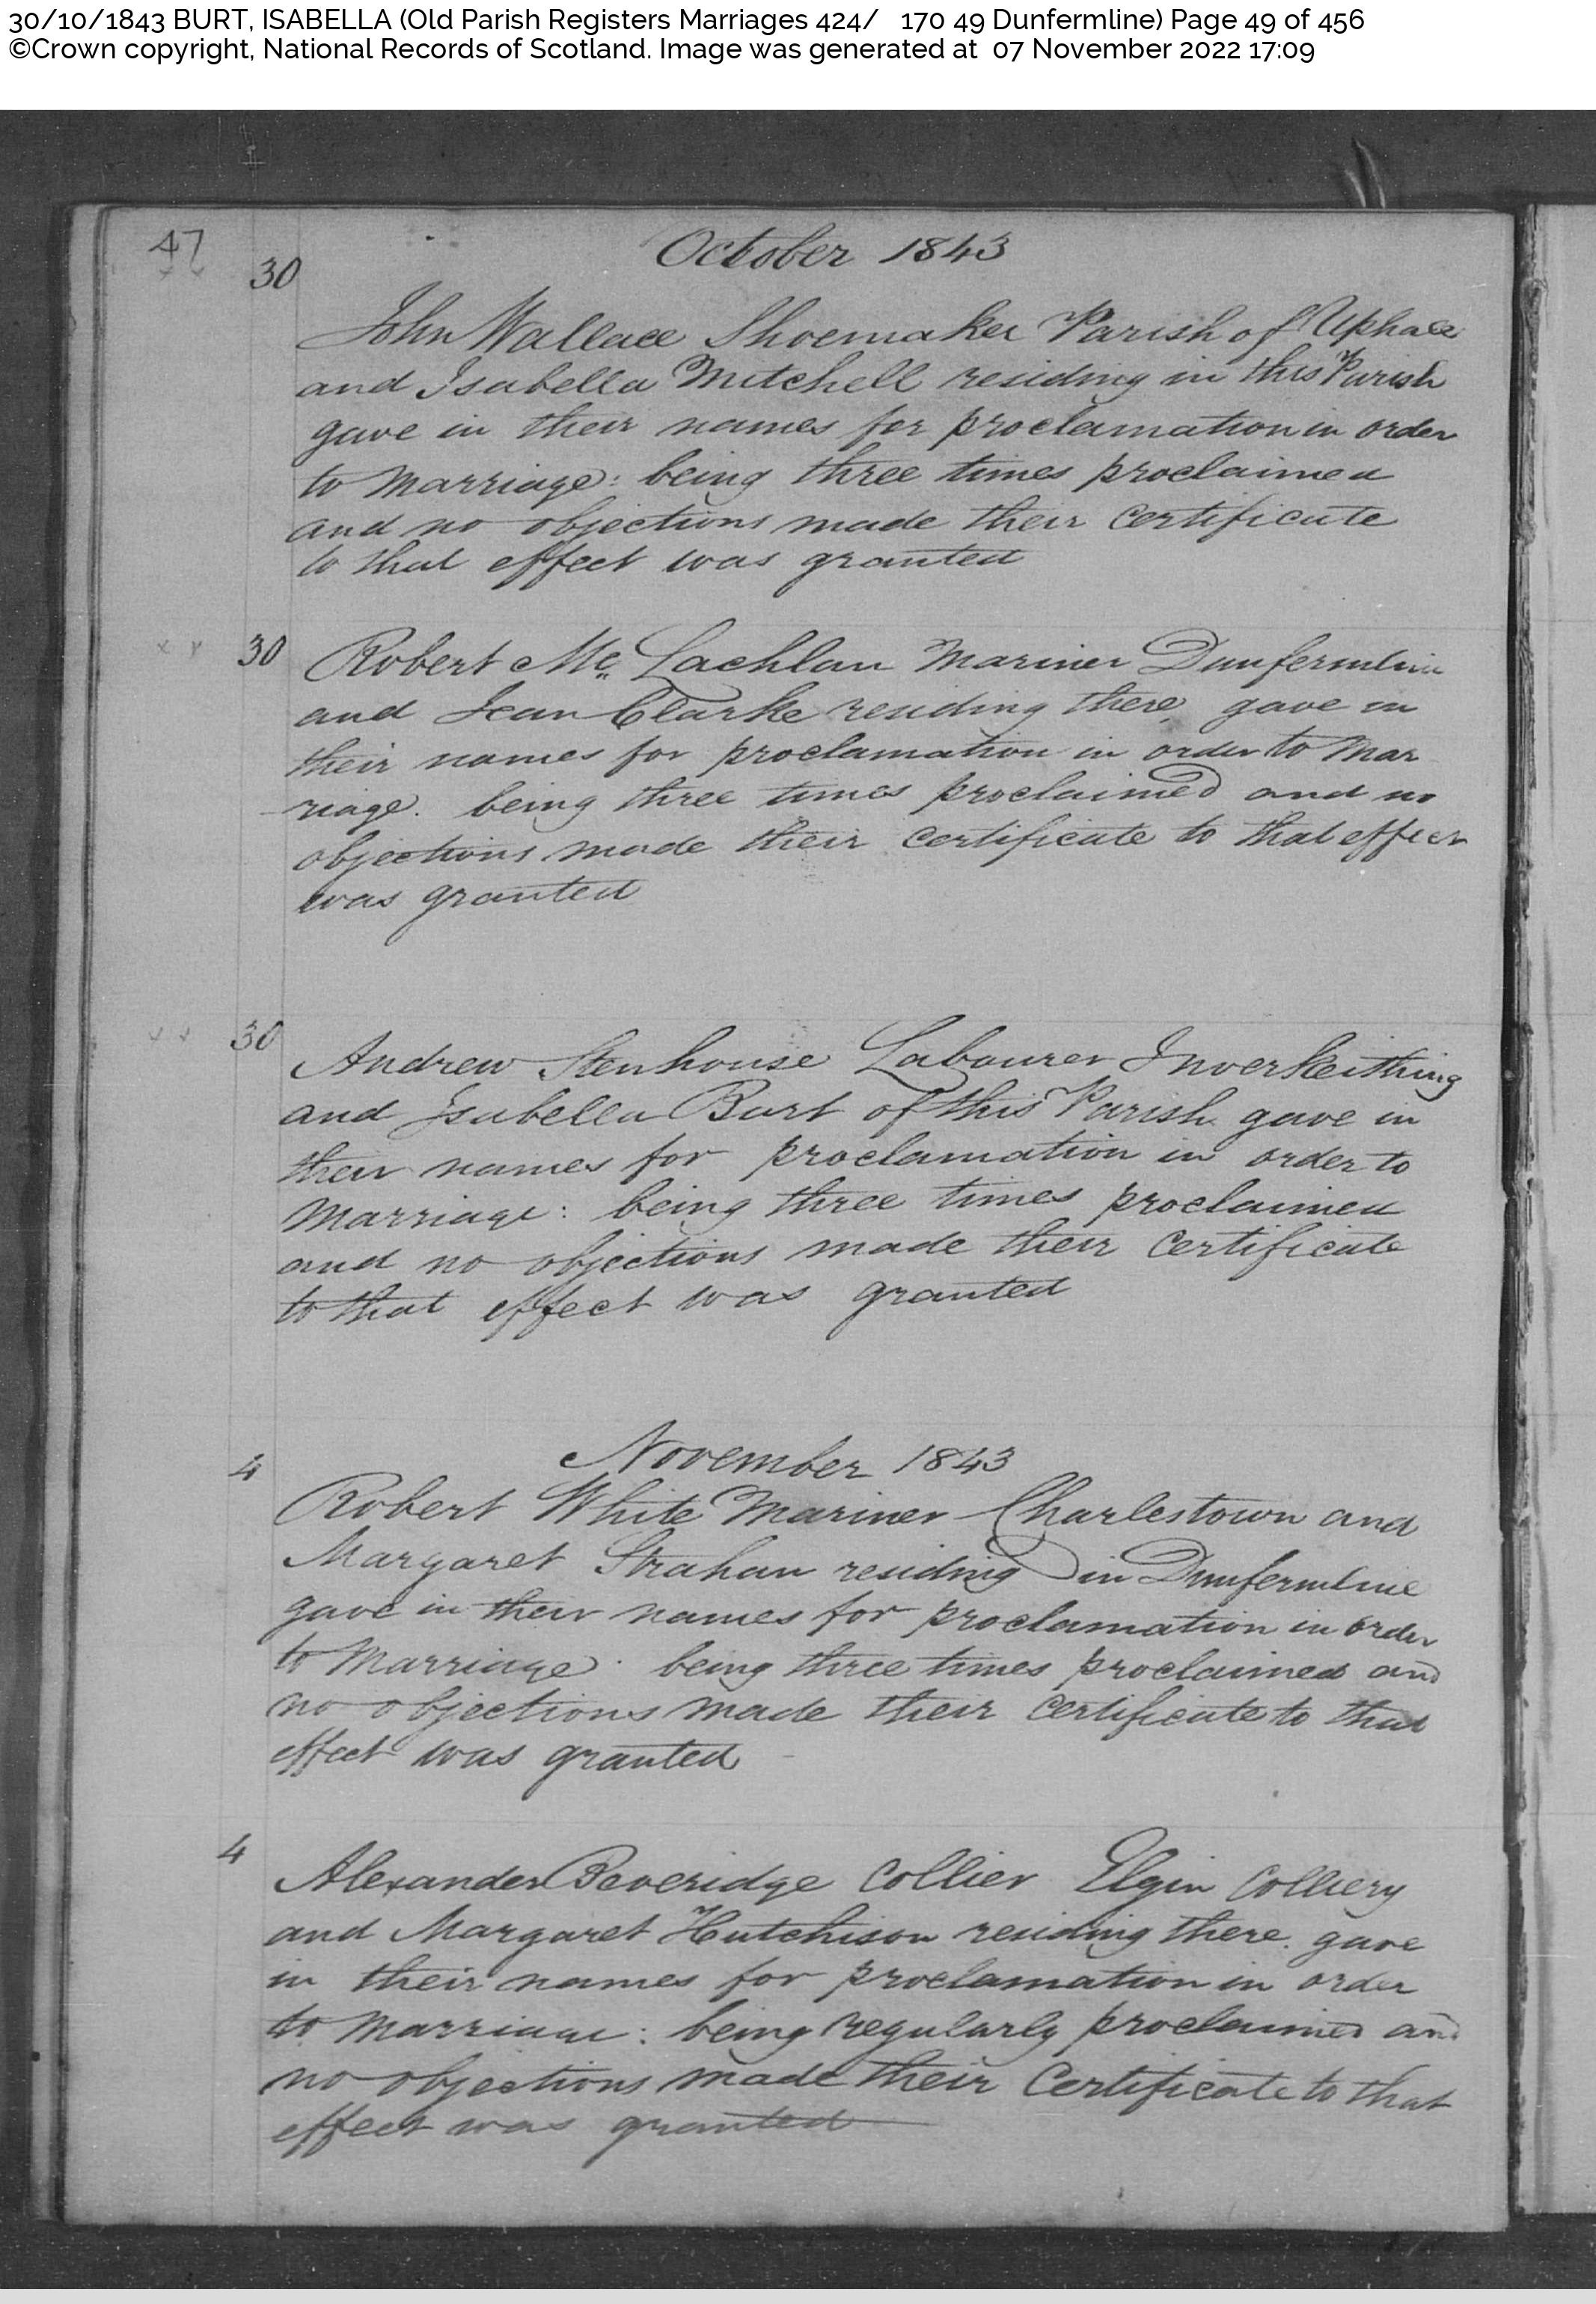 30/10/1843 BURT, ISABELLA (Old Parish Registers Marriages 424/ 170 49 Dunfermline) Page 49 of 456
©Crown copyright, National Records of Scotland. Image was generated at 07 November 2022 17:09
47
October 1843
30
John Wallace Shoemaker Parish of Uphall
and Isabella Mitchell residing in this Parish
gave in their names for proclamation in order
to Marriage: being three times proclaimed
and no objections made their certificate
to that effect was granted
30 Robert Mc Lachlan Mariner Dunfermline
and Jean Clarke residing there, gave in
their names for proclamation in order to Mar
riage. being three times proclaimed and no
objections made their certificate to that effect
was granted
30 Andrew Stenhouse Labourer Inverkeithing
and Isabella Burt of this Parish gave in
their names for proclamation in order to
Marriage: being three times proclaimed
and no objections made their certificate
to that effect was granted
November 1843
4
Robert White Mariner Charlestown and
Margaret Strahan residing in Dunfermline
gave in their names for proclamation in order
to Marriage. being three times proclaimed and
no objections made their certificate to that
effect was granted
4
Alexander Beveridge Collier Elgin Colliery
and Margaret Hutchison residing there. gave
in their names for proclamation in order
to Marriage: being regularly proclaimed and
no objections made their Certificate to that
effect was granted